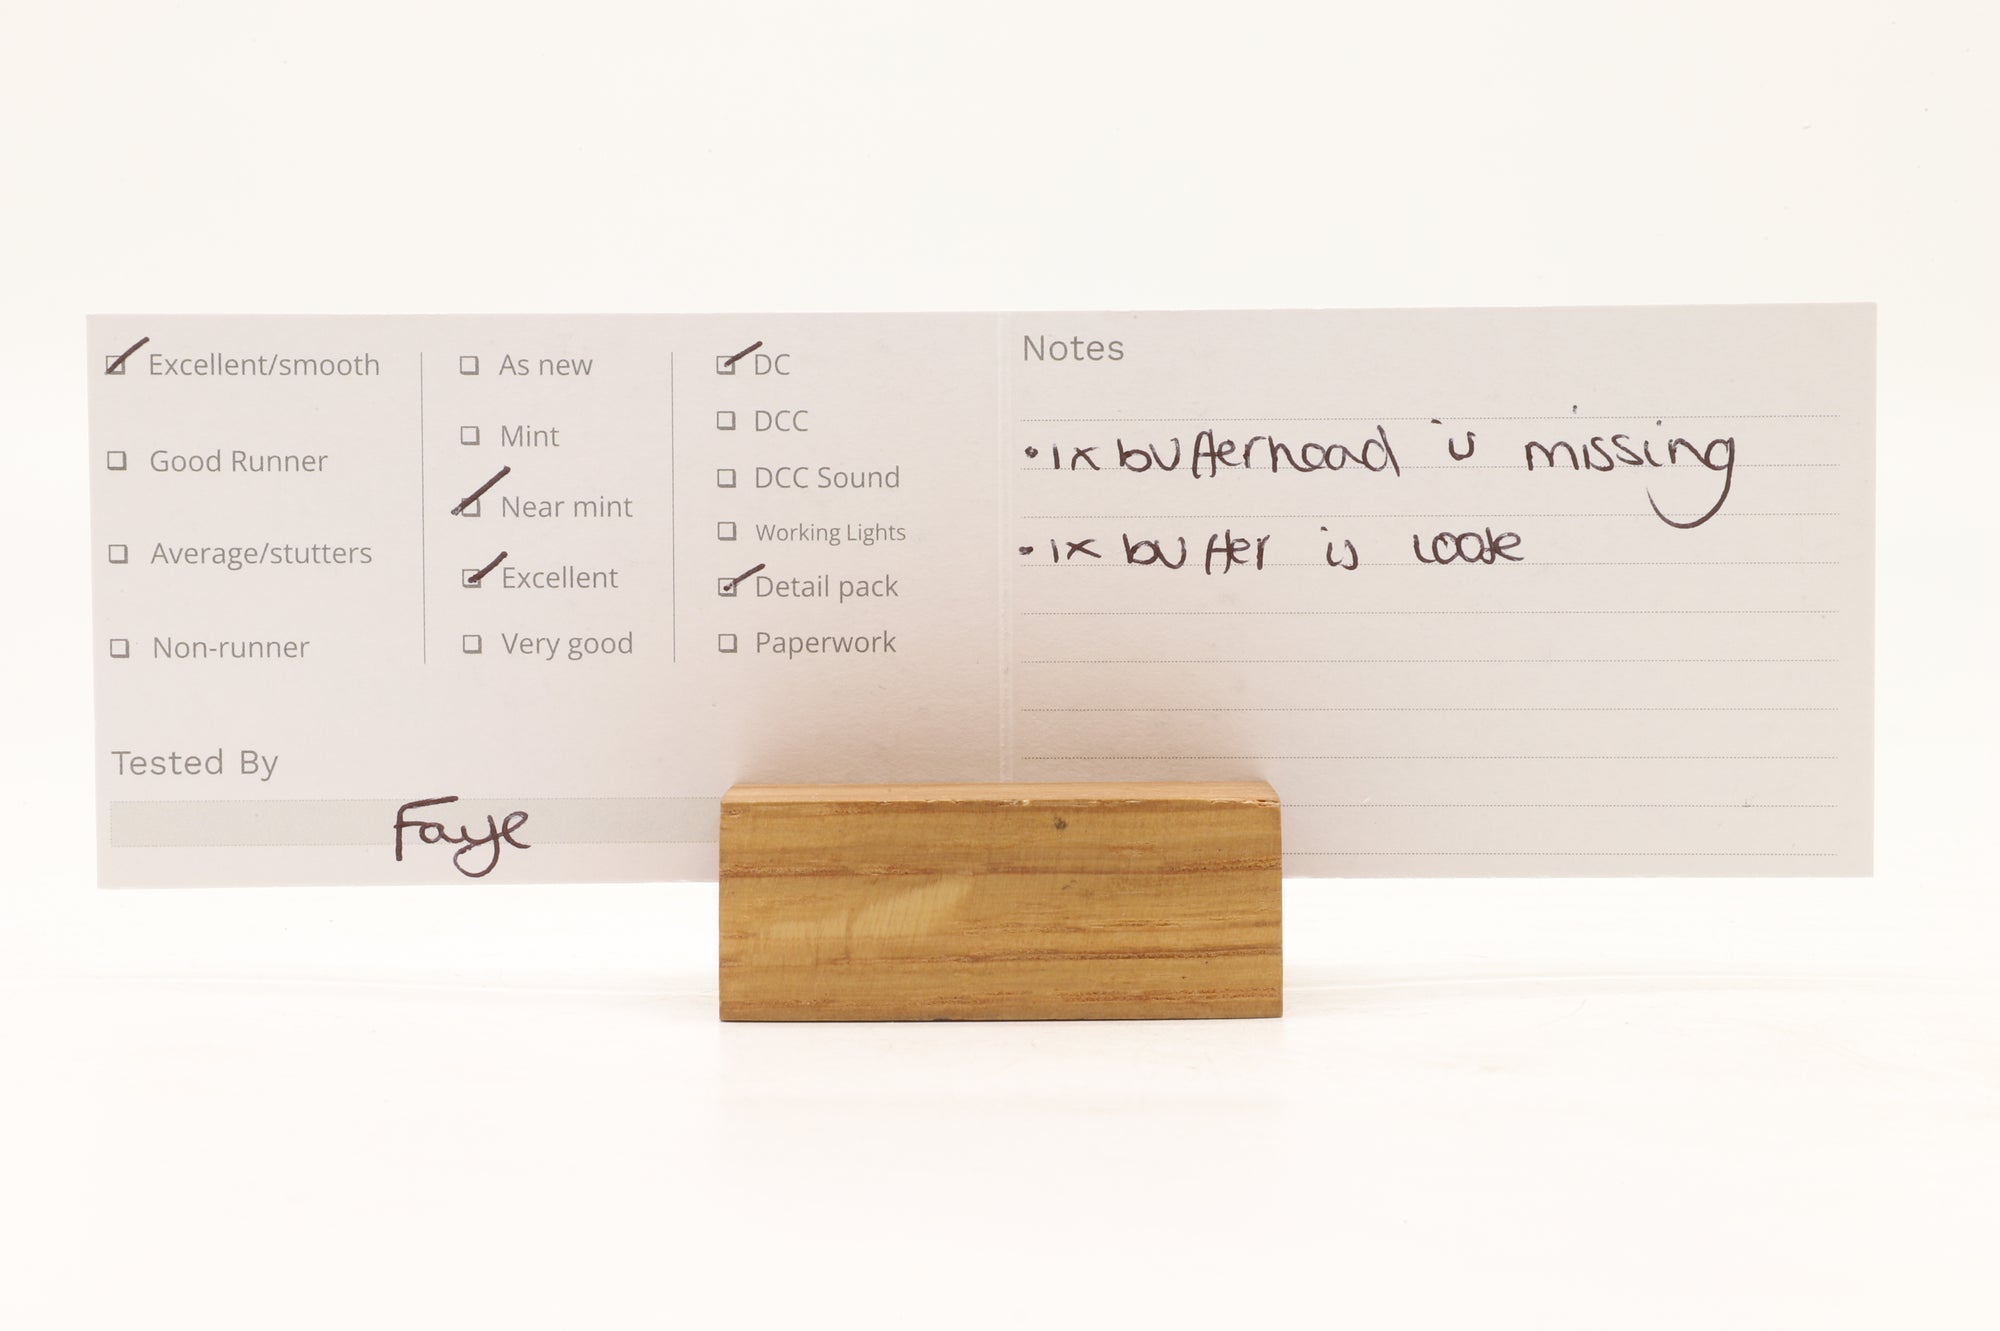 Excellent/smooth
Good Runner
Average/stutters
Non-runner
As new
Mint
Near mint
Excellent
Very good
DC
DCC
DCC Sound
Working Lights
Detail pack
Paperwork
Tested By
Faye
Notes
• 1x bufferhead is missing
• 1x buffer is loose